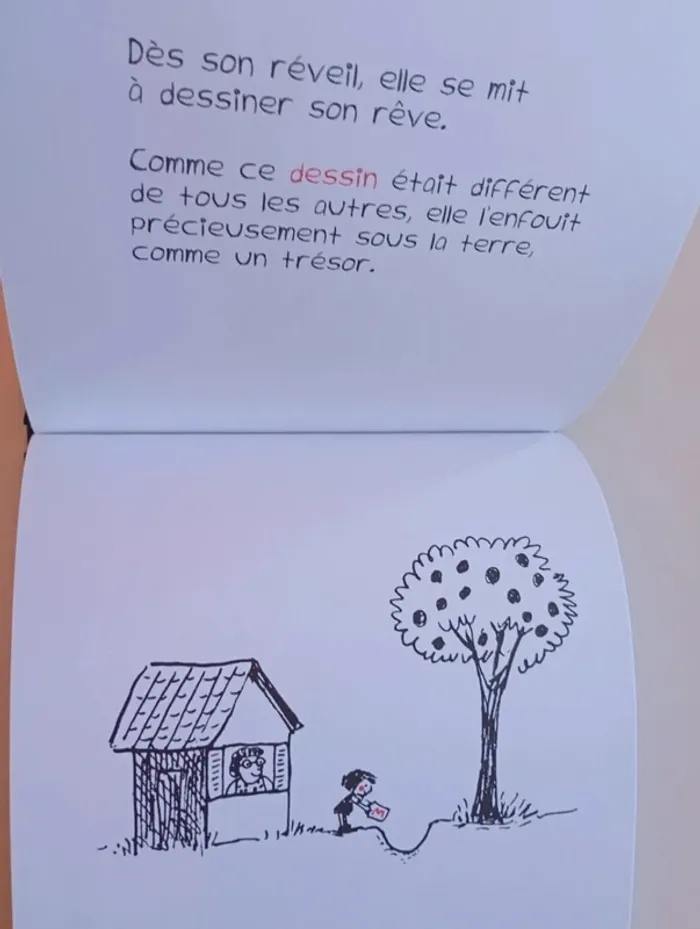 Dès son réveil, elle se mit
à dessiner son rêve.
Comme ce dessin était différent
de tous les autres, elle l'enfouit
précieusement sous la terre,
comme un trésor.